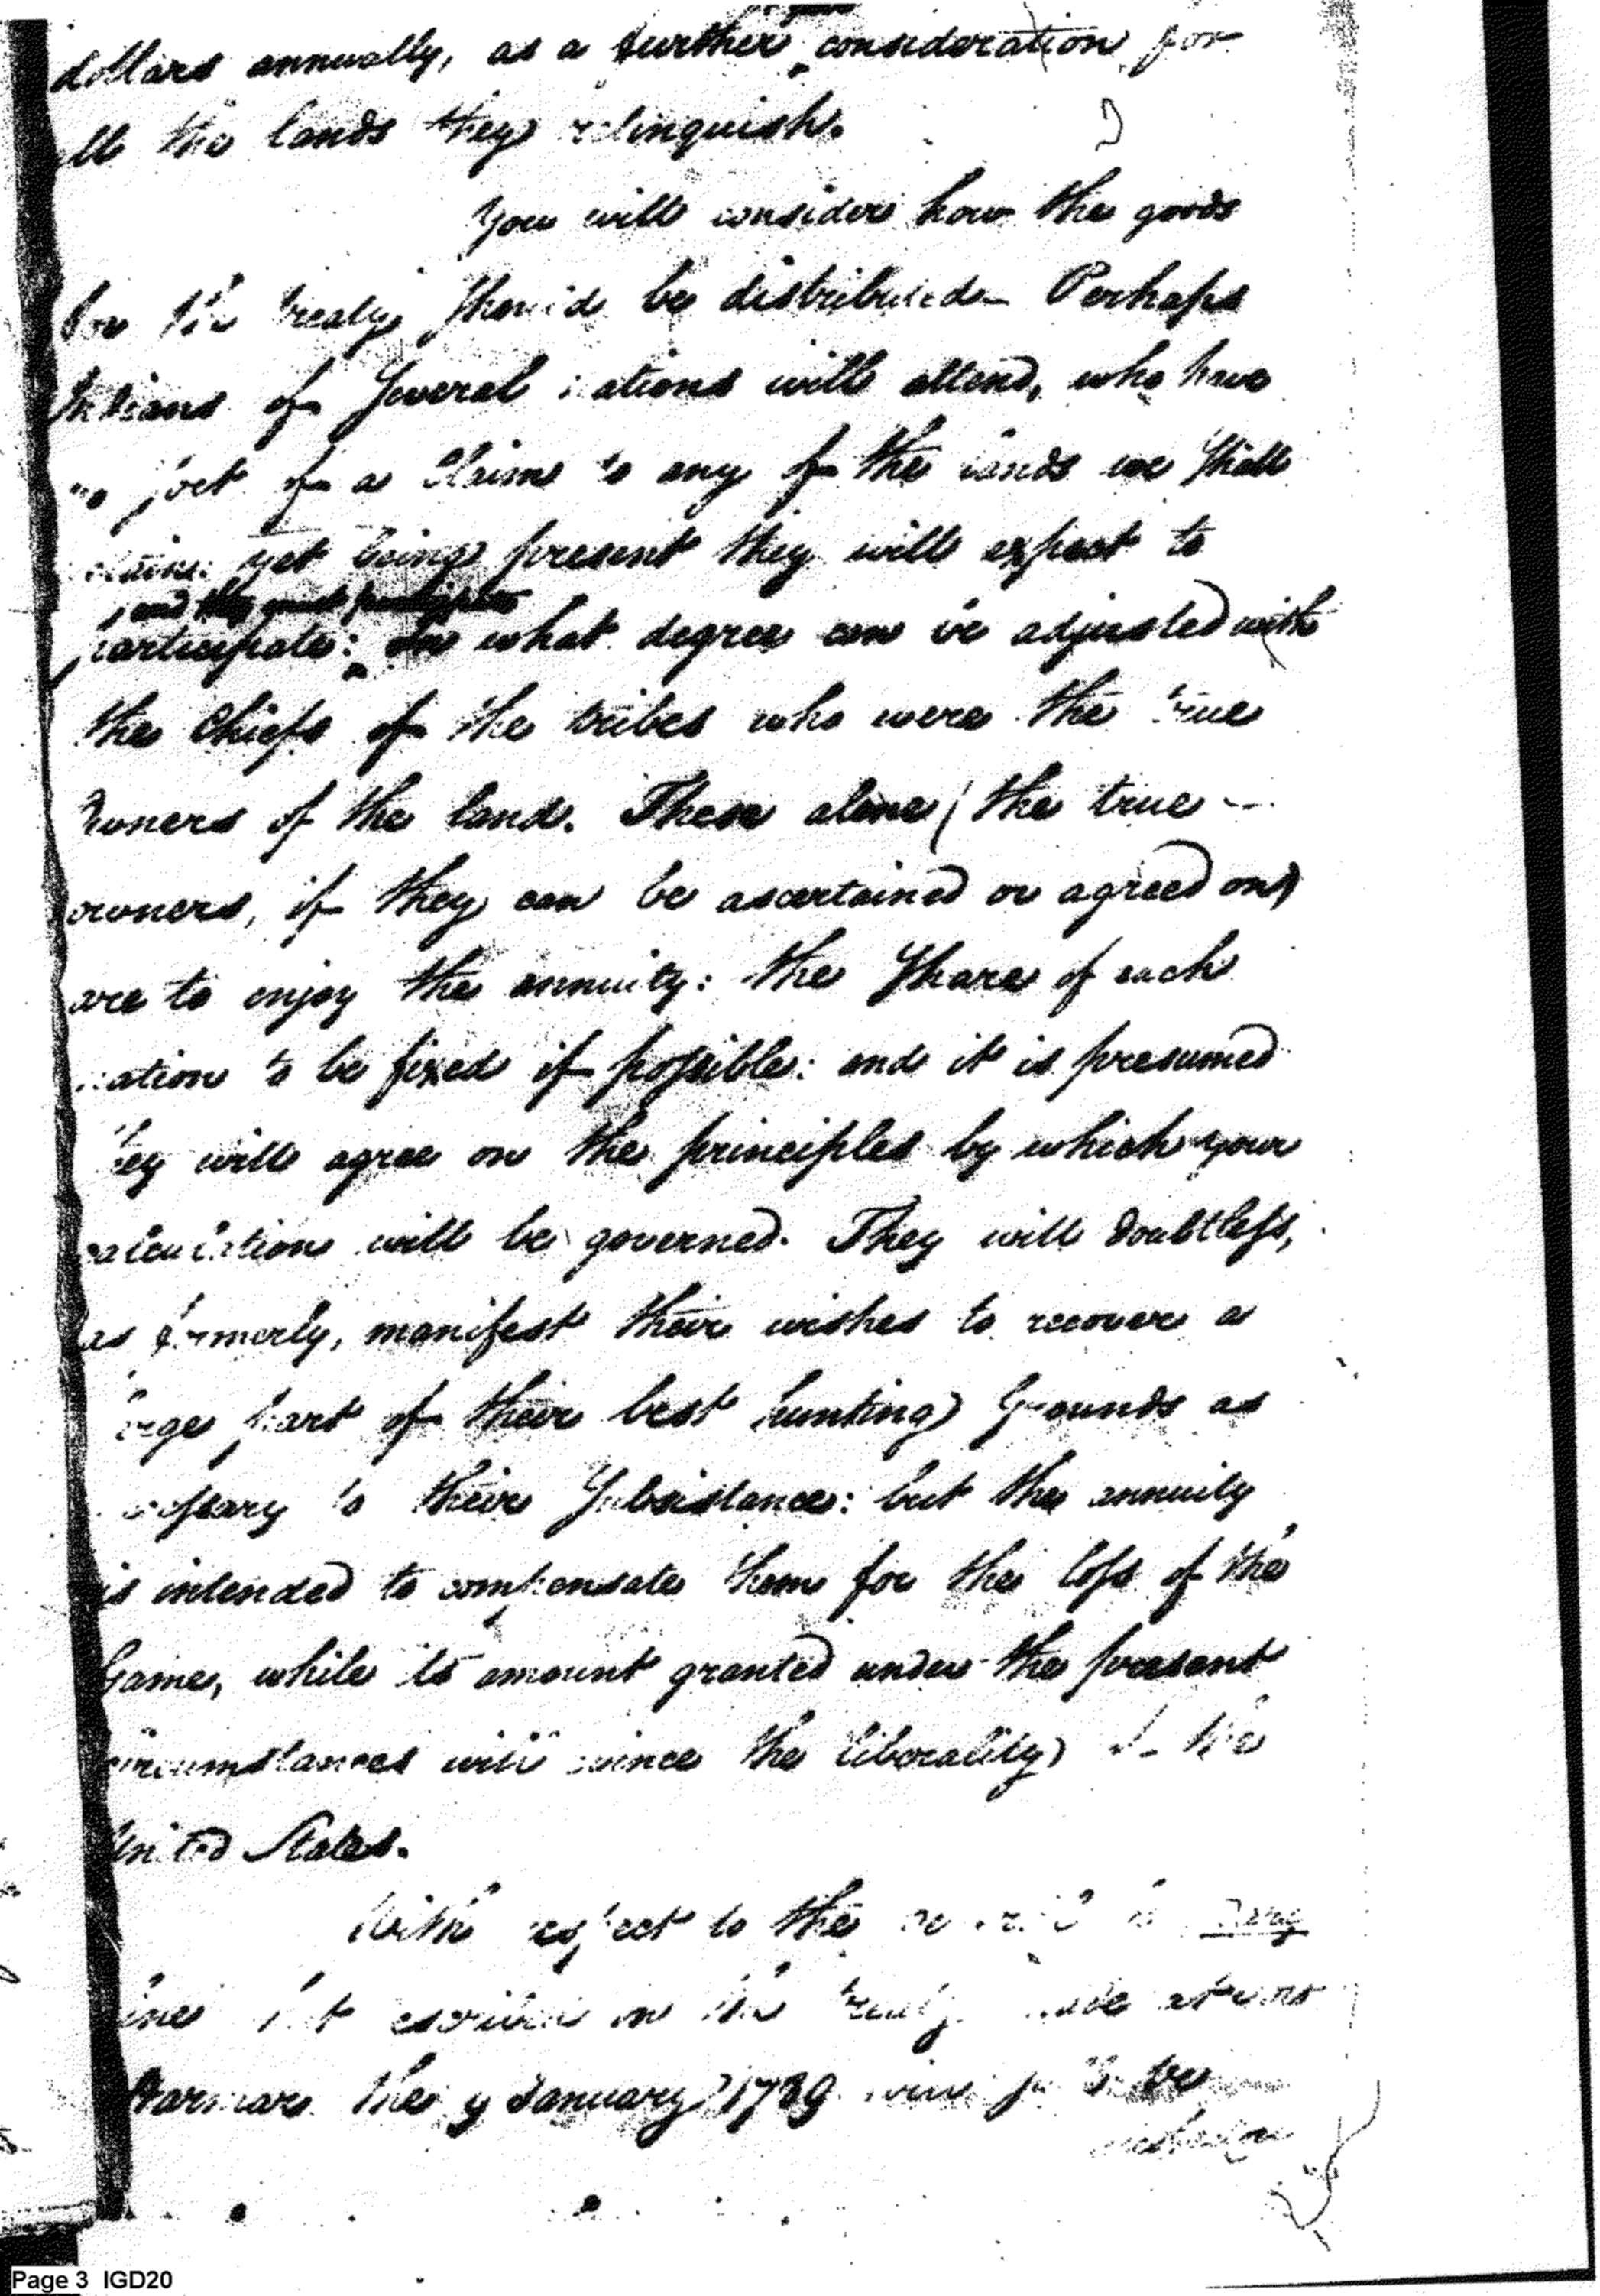 dollars annually, as a further consideration for
all the lands they relinquish.
You will consider how the goods
for the treaty should be distributed. Perhaps
Indians of several nations will attend, who have
no jot of a claim to any of the lands we shall
obtain: yet being present they will expect to
, and they must participate
participate: In what degree can be adjusted with
the Chiefs of the tribes who were the true
owners of the land. These alone (the true
owners, if they can be ascertained or agreed on)
are to enjoy the annuity: the share of each
nation to be fixed if possible: and it is presumed
they will agree on the principles by which your
calculation will be governed. They will doubtless,
as formerly, manifest their wishes to recover a
large part of their best hunting Grounds as
necessary to their Subsistance: but the annuity
is intended to compensate them for the loss of the
Game, while its amount granted under the present
circumstances will evince the liberality of the
United States.
With respect to the
line in the treaty made at Fort
Harmar the 9 January 1789
Page 3 IGD20